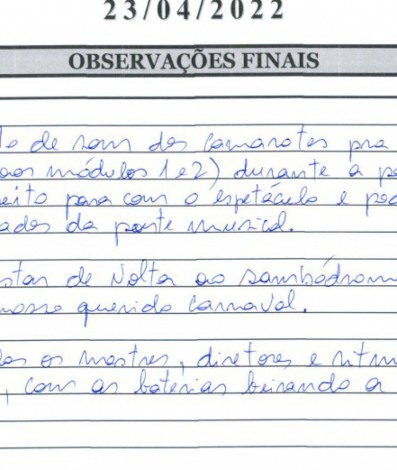 23/04/2022
OBSERVAÇÕES FINAIS
de som dos camarotes pra
aos módulos 1 e 2) durante a
eito para com o espetáculo e
ados da parte musical.
star de volta ao sambódrom
nosso querido carnaval.
os mestres, diretores e ritm
, com as baterias beirando a